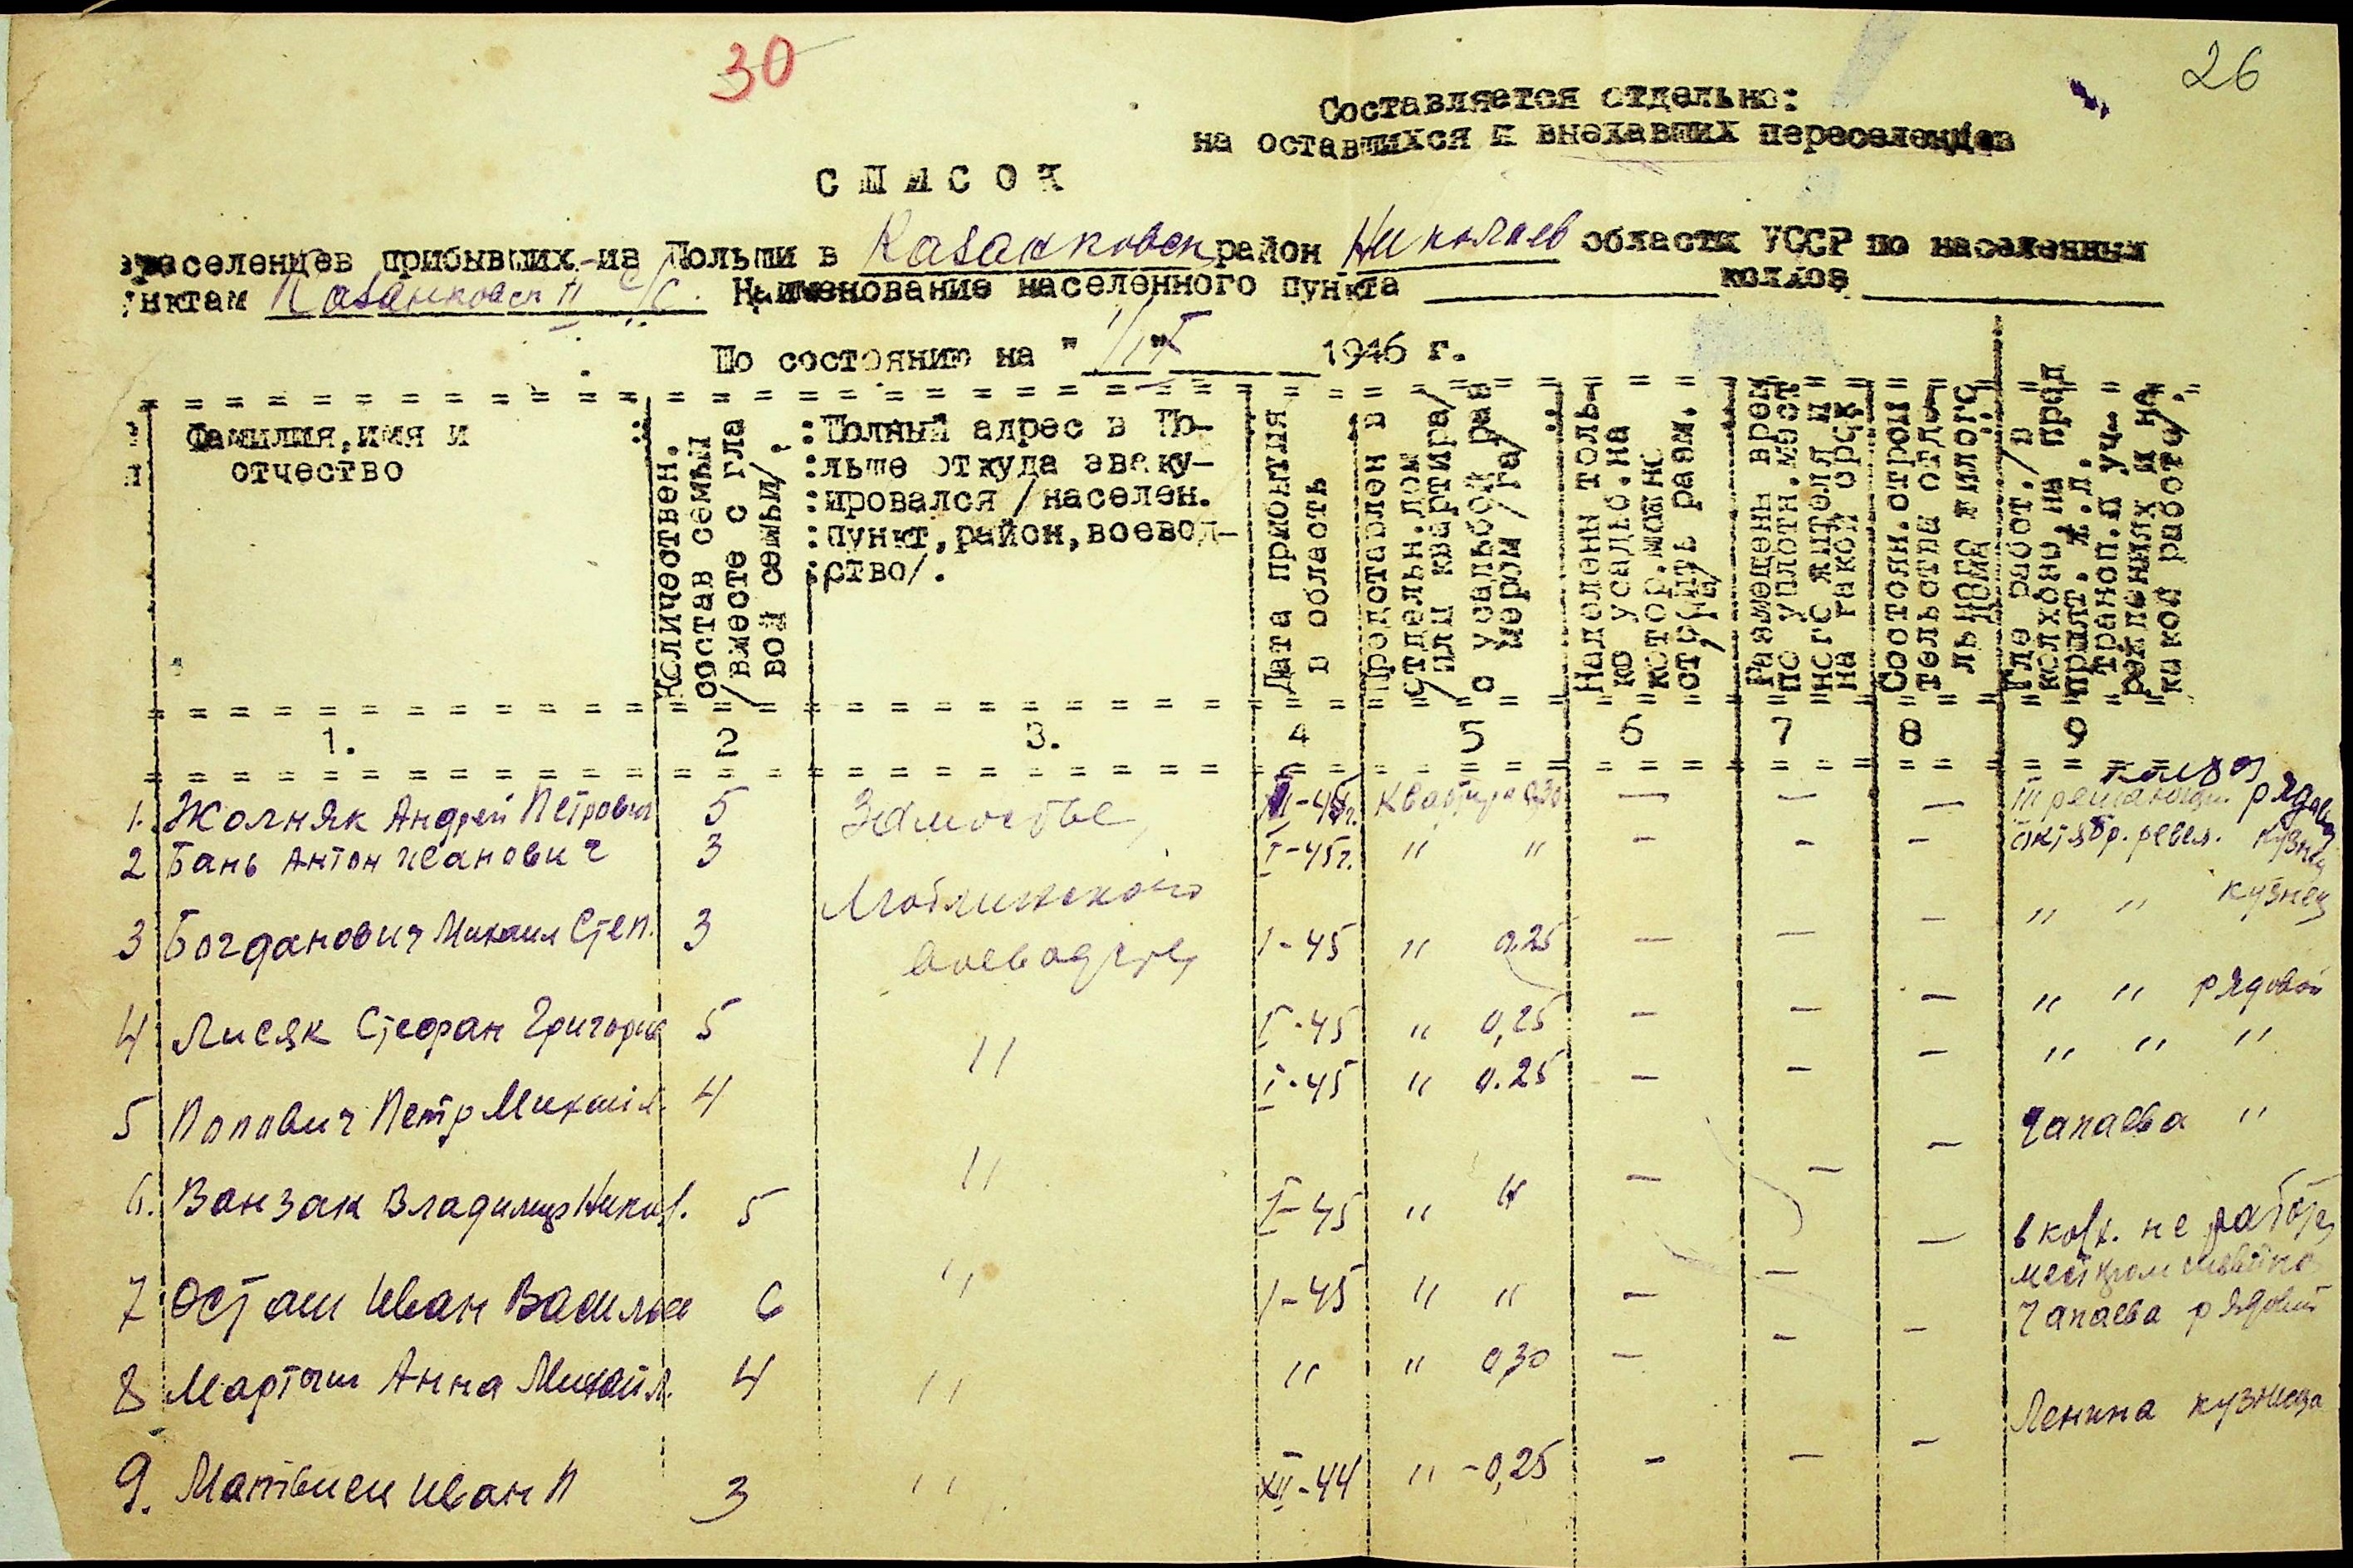 30
26
Составляется отдельно:
на оставшихся и внехавших переселенцев
СПИСОК
селенцев прибывших из Польши в Казанковск район Николаев области УССР по населенным
нктам Казанковск II с/с. Наименование населенного пункта колхоз
По состоянию на " 1/" 1946 г.
Фамилия, имя и
отчество
Количествен.
состав семьи
/вместе с гла
вой семьи/.
Полный адрес в По-
льше откуда эваку-
ировался /населен.
пункт, район, воевод-
ство/.
Дата прибытия
в область
Предоставлен в
отдельн. дом
/или квартира/
с усадьбой раз
мером /га/
Наделены толь-
ко усадьб. на
котор. можно
строить разм.
/га/
Размещены врем
по уплотн. мест
ного жителя и
на какой срок
Состоян. строи
тельства отдел
льного жилого
дома
Где работ. /в
колхозе, на пред
прият. и.л.
какой работе/
1. 2 3. 4 5 6 7 8 9
колхоз
1. Жолняк Андрей Петрович 5 Замостье, -45г. Квартира 0,30 — — — III решающий рядовой
2 Бань Антон Иванович 3 I-45г. " " — — — Октябр. револ. кузнец
3 Богданович Михаил Степ. 3 I-45 " 0.25 — — — " " кузнец
воеводств,
4 Лисяк Стефан Григорьев 5 " I-45 " 0,25 — — — " " рядовой
5 Попович Петр Михайл. 4 " I-45 " 0.25 — — — " " "
6. Ванзак Владимир Никол. 5 " I-45 " " — — — Чапаева "
7 Осташ Иван Василье 6 " I-45 " " — — — в колх. не работает
8 Мартыш Анна Михайл. 4 " " " 0,30 — — — Чапаева рядовой
9. Матвиеи Иван П 3 " XII-44 " -0,25 — — — Ленина кузнеца